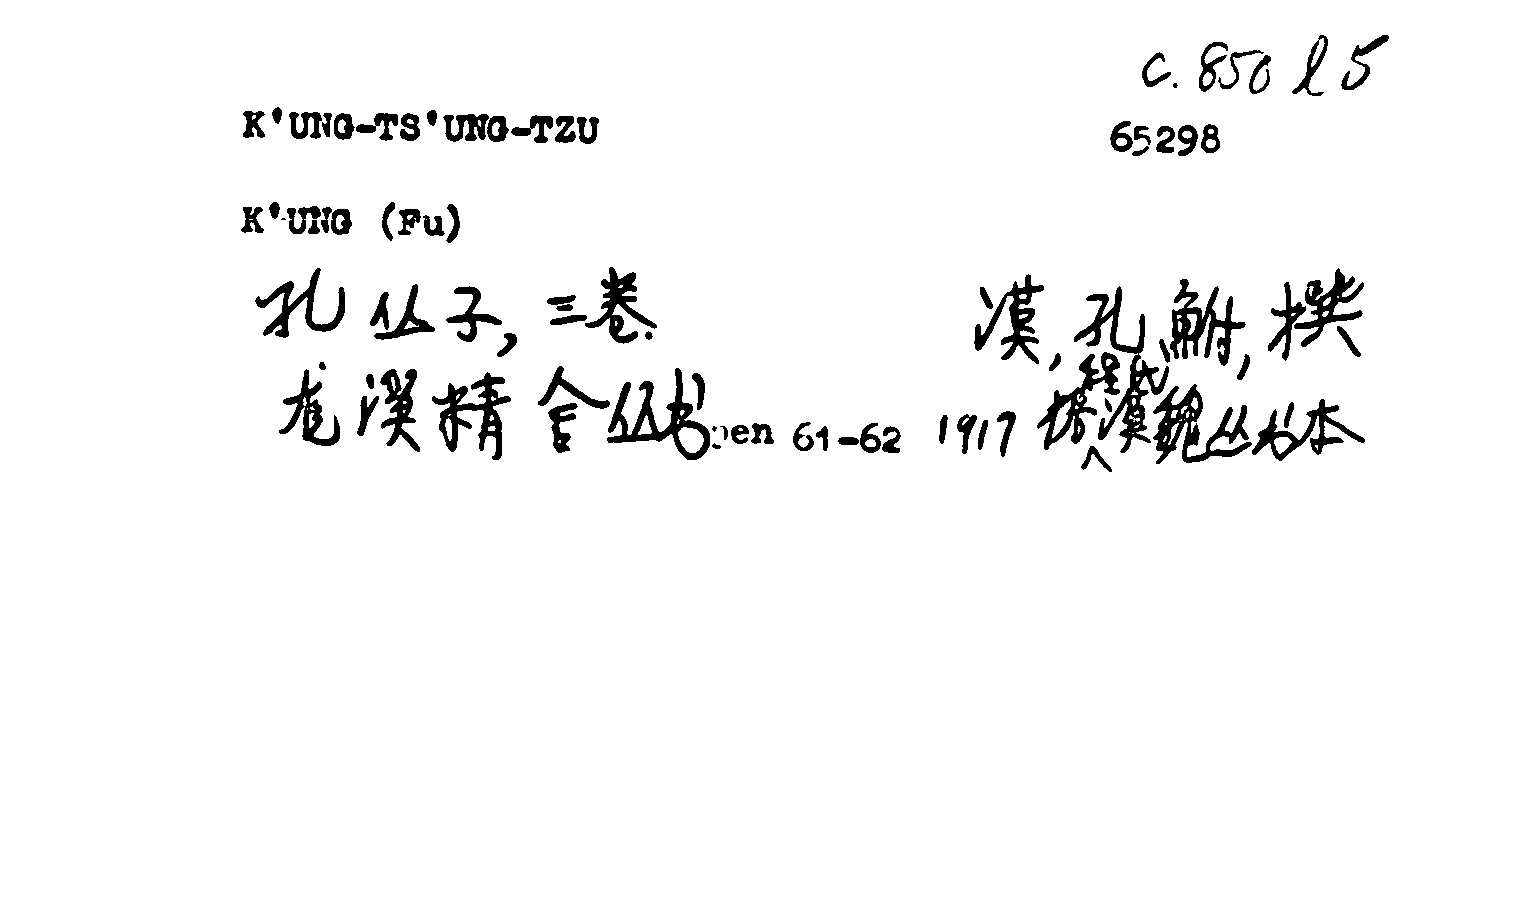 c. 850 l 5
K'UNG-TS'UNG-TZU
65298
K'UNG (Fu)
孔丛子, 三卷. 漢, 孔鮒, 撰
龙溪精舍丛书 pen 61-62 1917 據程氏漢魏丛书本